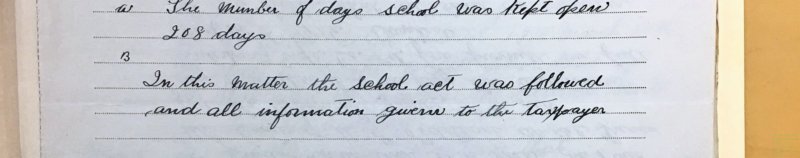 a The number of days school was kept open
208 days
B
In this matter the school act was followed
and all information given to the taxpayer